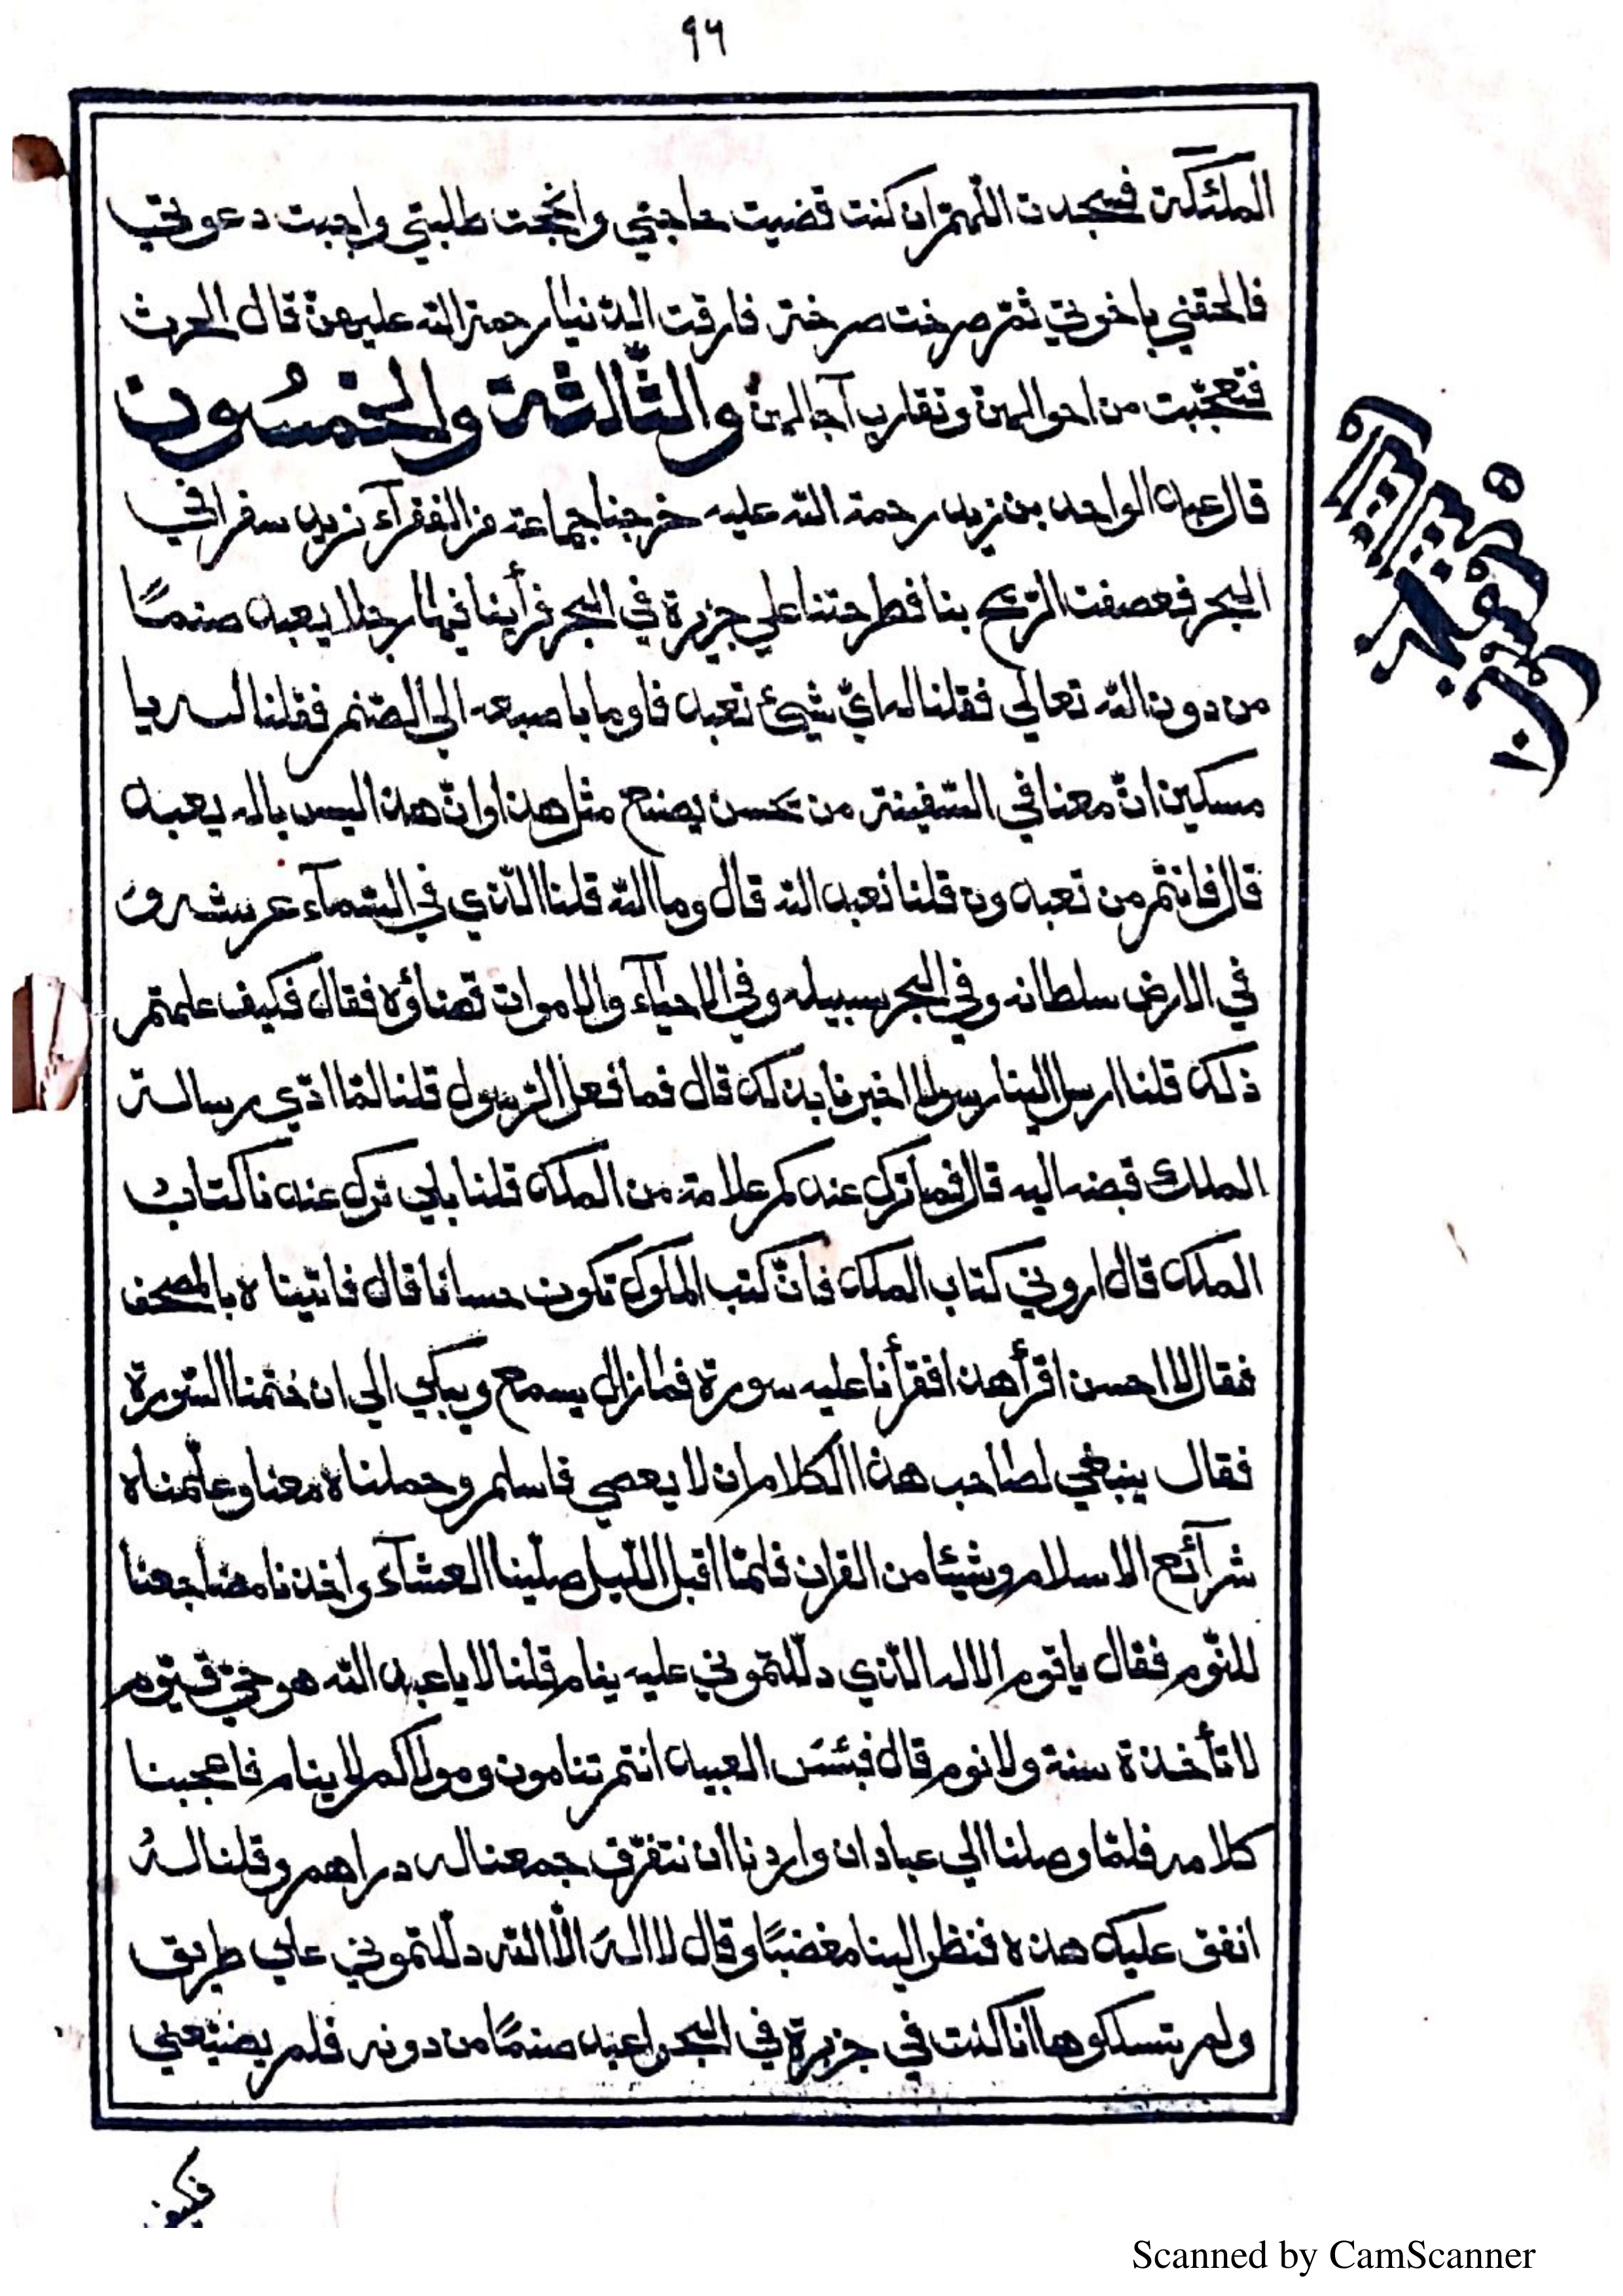 ٩٦
الملئكة فسجدت اللّهمّ ان كنت قضيت حاجتي وانجحت طلبتي واجبت دعوتي
فالحقني باخوتي ثمّ صرخت صرخة فارقت الدّنيا رحمة الله عليهنّ قال الحرث
فتعجّبت من احوالهنّ وتقارب آجالهنّ والثّالثة والخمسُون
قال عبد الواحد بن زيد رحمة الله عليه خرجنا جماعة من الفقرآء نريد سفرا في
البحر فعصفت الرّيح بنا فطرحتنا علي جزيرة في البحر فرأينا فيها رجلا يعبد صنمًا
من دون الله تعالي فقلنا له ايّ شيئ تعبد فاوما باصبعه الي الصّنم فقلنا له يا
مسكين انّ معنا في السّفينة من يحسن يصنع مثل هذا وانّ هذا ليس باله يعبد
قال فانتم من تعبدون قلنا نعبد الله قال وما الله قلنا الّذي في السّمآء عرشه و
في الارض سلطانه وفي البحر سبيله وفي الاحيآء والاموات قضاؤه فقال فكيف علمتم
ذلك قلنا ارسل الينا رسولا اخبرنا بذلك قال فما فعل الرّسول قلنا لمّا ادّي رسالة
الملك قبضه اليه قال فما ترك عندكم علامة من الملك قلنا بلي ترك عندنا كتابُ
الملك قال اروني كتاب الملك فانّ كتب الملوك تكون حسانا قال فاتيناه بالمصحف
فقال لا احسن اقرأ هذا فقرأنا عليه سورة فما زال يسمع ويبكي الي ان ختمنا السّورة
فقال ينبغي لصاحب هذا الكلام ان لا يعصي فاسلم وحملناه معنا وعلّمناه
شرآئع الاسلام وشيئا من القران فلمّا اقبل اللّيل صلّينا العشآء واخذنا مضاجعنا
للنّوم فقال يا قوم الاله الّذي دلّلتموني عليه ينام قلنا لا يا عبد الله هو حيّ قيّوم
لا تأخذه سنة ولا نوم قال فبئسَ العبيد انتم تنامون ومولاكم لا ينام فاعجبنا
كلامه فلمّا وصلنا الي عبادان واردنا ان نتفرّق جمعنا له دراهم وقلنا لهُ
انفق عليك هذه فنظر الينا مغضبًا وقال لا الهَ الّا الله دلّلتموني علي طريق
ولم تسلكوها انا كنت في جزيرة في البحر اعبد صنمًا من دونه فلم يضيّعني
فكيف